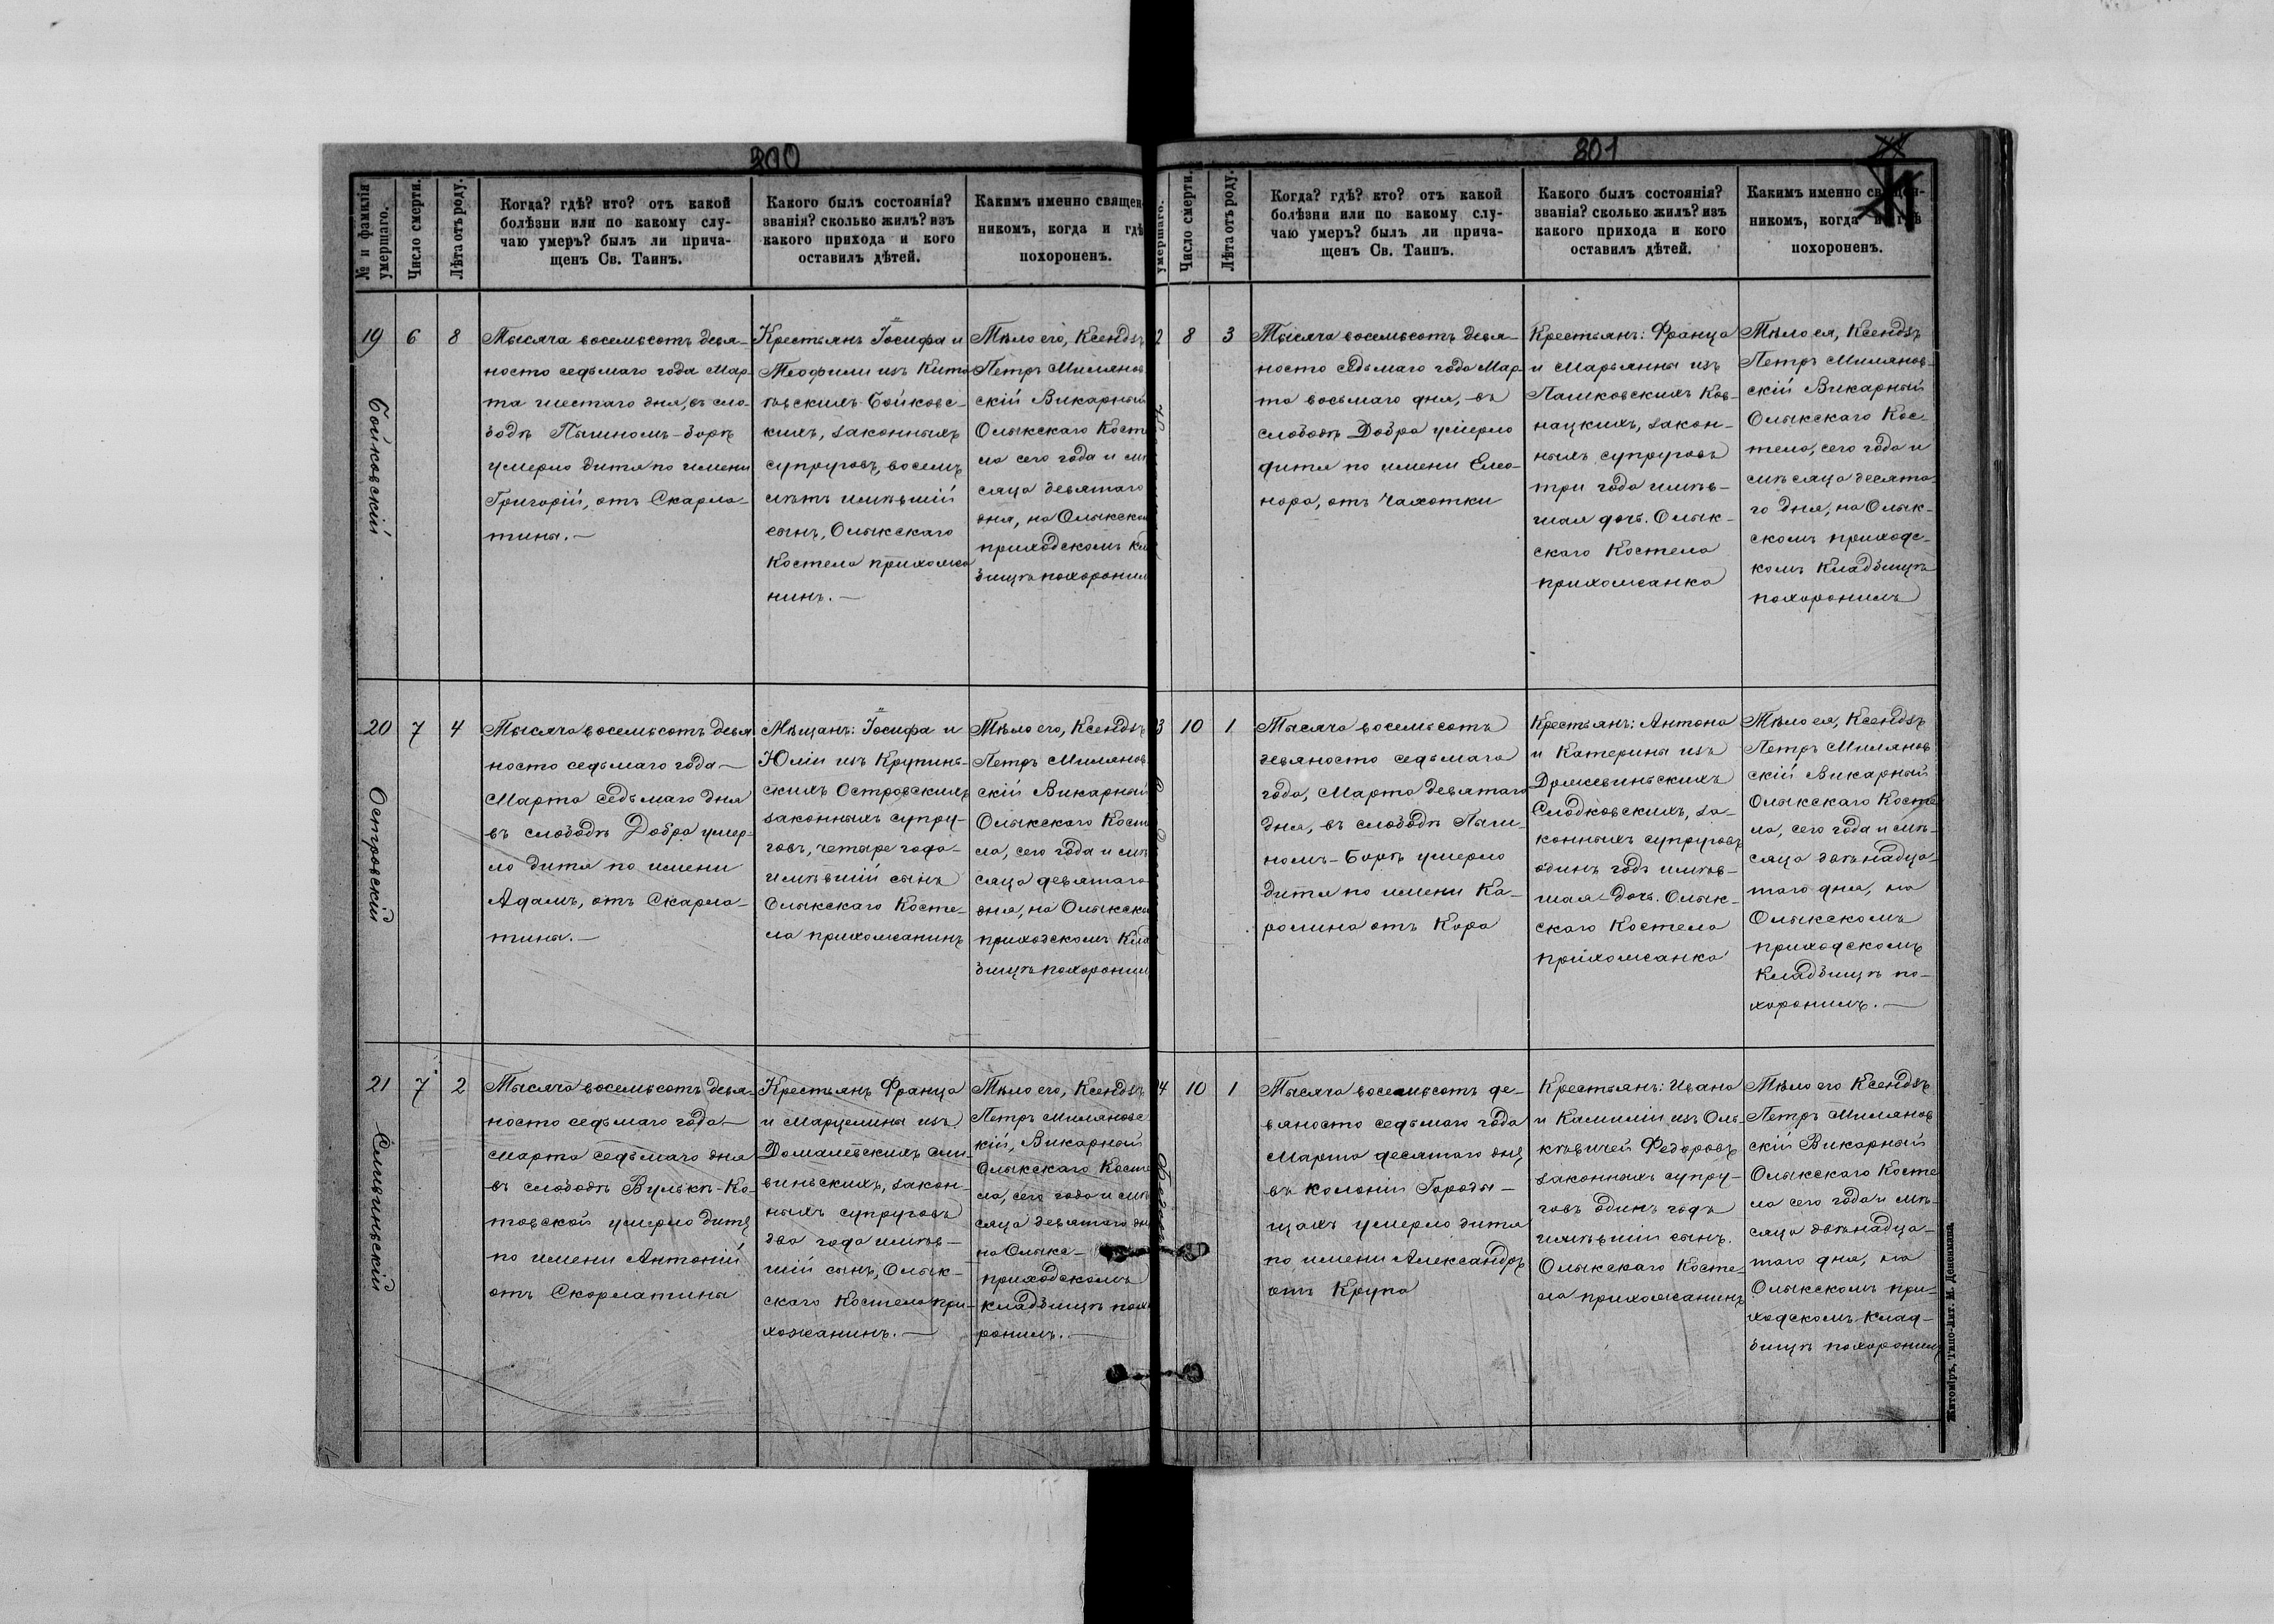 300
№ и фамилія умершаго.
Число смерти.
Лѣта отъ роду.
Когда? гдѣ? кто? отъ какой
болѣзни или по какому слу-
чаю умеръ? былъ ли прича-
щенъ Св. Таинъ.
Какого былъ состоянія?
званія? сколько жилъ? изъ
какого прихода и кого
оставилъ дѣтей.
Какимъ именно священ-
никомъ, когда и гдѣ
похороненъ.
19
Бойковскій
6
8
Тысяча восемьсотъ девя-
носто седьмаго года Мар-
та шестаго дня, въ сло-
бодѣ
умерло дитя по имени
Григорій, отъ Скарла-
тины.—
Крестьянъ Іосифа и
Теофили изъ
Бойковс-
кихъ, законныхъ
супруговъ, восемь
лѣтъ имѣвшій
сынъ, Олыкскаго
Костела прихожа
нинъ.—
Тѣло его, Ксендзъ
Петръ Милянов
скій Викарный
Олыкскаго Косте
ла сего года и мѣ
сяца девятаго
дня, на Олыкском
приходскомъ Кла
бищѣ похоронил
20
Островскій
7
4
Тысяча восемьсотъ девя
носто седьмаго года—
Марта седьмаго дня
въ слободѣ Добра умер-
ло дитя по имени
Адамъ, отъ Скарла-
тины.—
Мѣщанъ: Іосифа и
Юліи изъ Крупинь-
скихъ Островскихъ
законныхъ супру-
говъ, четыре года
имѣвшій сынъ
Олыкскаго Косте-
ла прихожанинъ
Тѣло его, Ксендзъ
Петръ Милянов
скій Викарный
Олыкскаго Косте
ла, сего года и мѣ
сяца девятаго
дня, на Олыкском
приходскомъ Клад
бищѣ похоронил
21
Сливиньскій
7
2
Тысяча восемьсотъ девя-
носто седьмаго года—
Марта седьмаго дня
въ слободѣ Вулькѣ-Ко-
товской умерло дитя
по имени Антоній
отъ Скарлатины
Крестьянъ Франца
и Марцелины изъ
Домалевскихъ Сли-
виньскихъ, закон-
ныхъ супруговъ
два года имѣв-
шій сынъ, Олык-
скаго Костела при-
хожанинъ.—
Тѣло его, Ксендзъ
Петръ Миляновс
кій, Викарный
Олыкскаго Косте
ла, сего года и мѣ
сяца девятаго дня
на Олыкс-
приходскомъ
кладбищѣ похо
ронилъ.—
301
умершаго.
Число смерти.
Лѣта отъ роду.
Когда? гдѣ? кто? отъ какой
болѣзни или по какому слу-
чаю умеръ? былъ ли прича-
щенъ Св. Таинъ.
Какого былъ состоянія?
званія? сколько жилъ? изъ
какого прихода и кого
оставилъ дѣтей.
Какимъ именно священ-
никомъ, когда и гдѣ
похороненъ.
2
8
3
Тысяча восемьсотъ девя-
носто седьмаго года Мар-
та восьмаго дня, въ
слободѣ Добра умерло
дитя по имени Елео-
нора, отъ Чахотки
Крестьянъ: Франца
и Марьянны изъ
Пашковскихъ Ков-
нацкихъ, закон-
ныхъ супруговъ
три года имѣв-
шая дочь. Олык-
скаго Костела
прихожанка
Тѣло ея, Ксендзъ
Петръ Милянов-
скій Викарный
Олыкскаго Кос-
тела, сего года и
мѣсяца десята-
го дня, на Олык-
скомъ приходс-
комъ Кладбищѣ
похоронилъ
3
10
1
Тысяча восемьсотъ
девяносто седьмаго
года, Марта девятаго
дня, въ слободѣ
умерло
дитя по имени Ка-
ролина отъ Кора
Крестьянъ: Антона
и Катерины изъ
Слодковскихъ, за-
конныхъ супруговъ
одинъ годъ имѣв-
шая дочь. Олык-
скаго Костела
прихожанка
Тѣло ея, Ксендзъ
Петръ Милянов
скій Викарный
Олыкскаго Косте
ла, сего года и мѣ-
сяца двѣнадца-
таго дня, на
Олыкскомъ
приходскомъ
Кладбищѣ по-
хоронилъ.—
4
10
1
Тысяча восемьсотъ де-
вяносто седьмаго года
Марта десятаго дня
въ колоніи Городи-
щахъ умерло дитя
по имени Александръ
отъ Крупа
Крестьянъ: Ивана
и Камиліи изъ Оль-
кѣвичей Федоровъ
законныхъ супру-
говъ одинъ годъ
имѣвшій сынъ.
Олыкскаго Косте-
ла прихожанинъ
Тѣло его Ксендзъ
Петръ Милянов
скій Викарный
Олыкскаго Косте
ла сего года и мѣ-
сяца двѣнадца-
таго дня, на
Олыкскомъ при-
ходскомъ Клад-
бищѣ похоронилъ
Житоміръ, Типо-Лит. М. Дененмана.